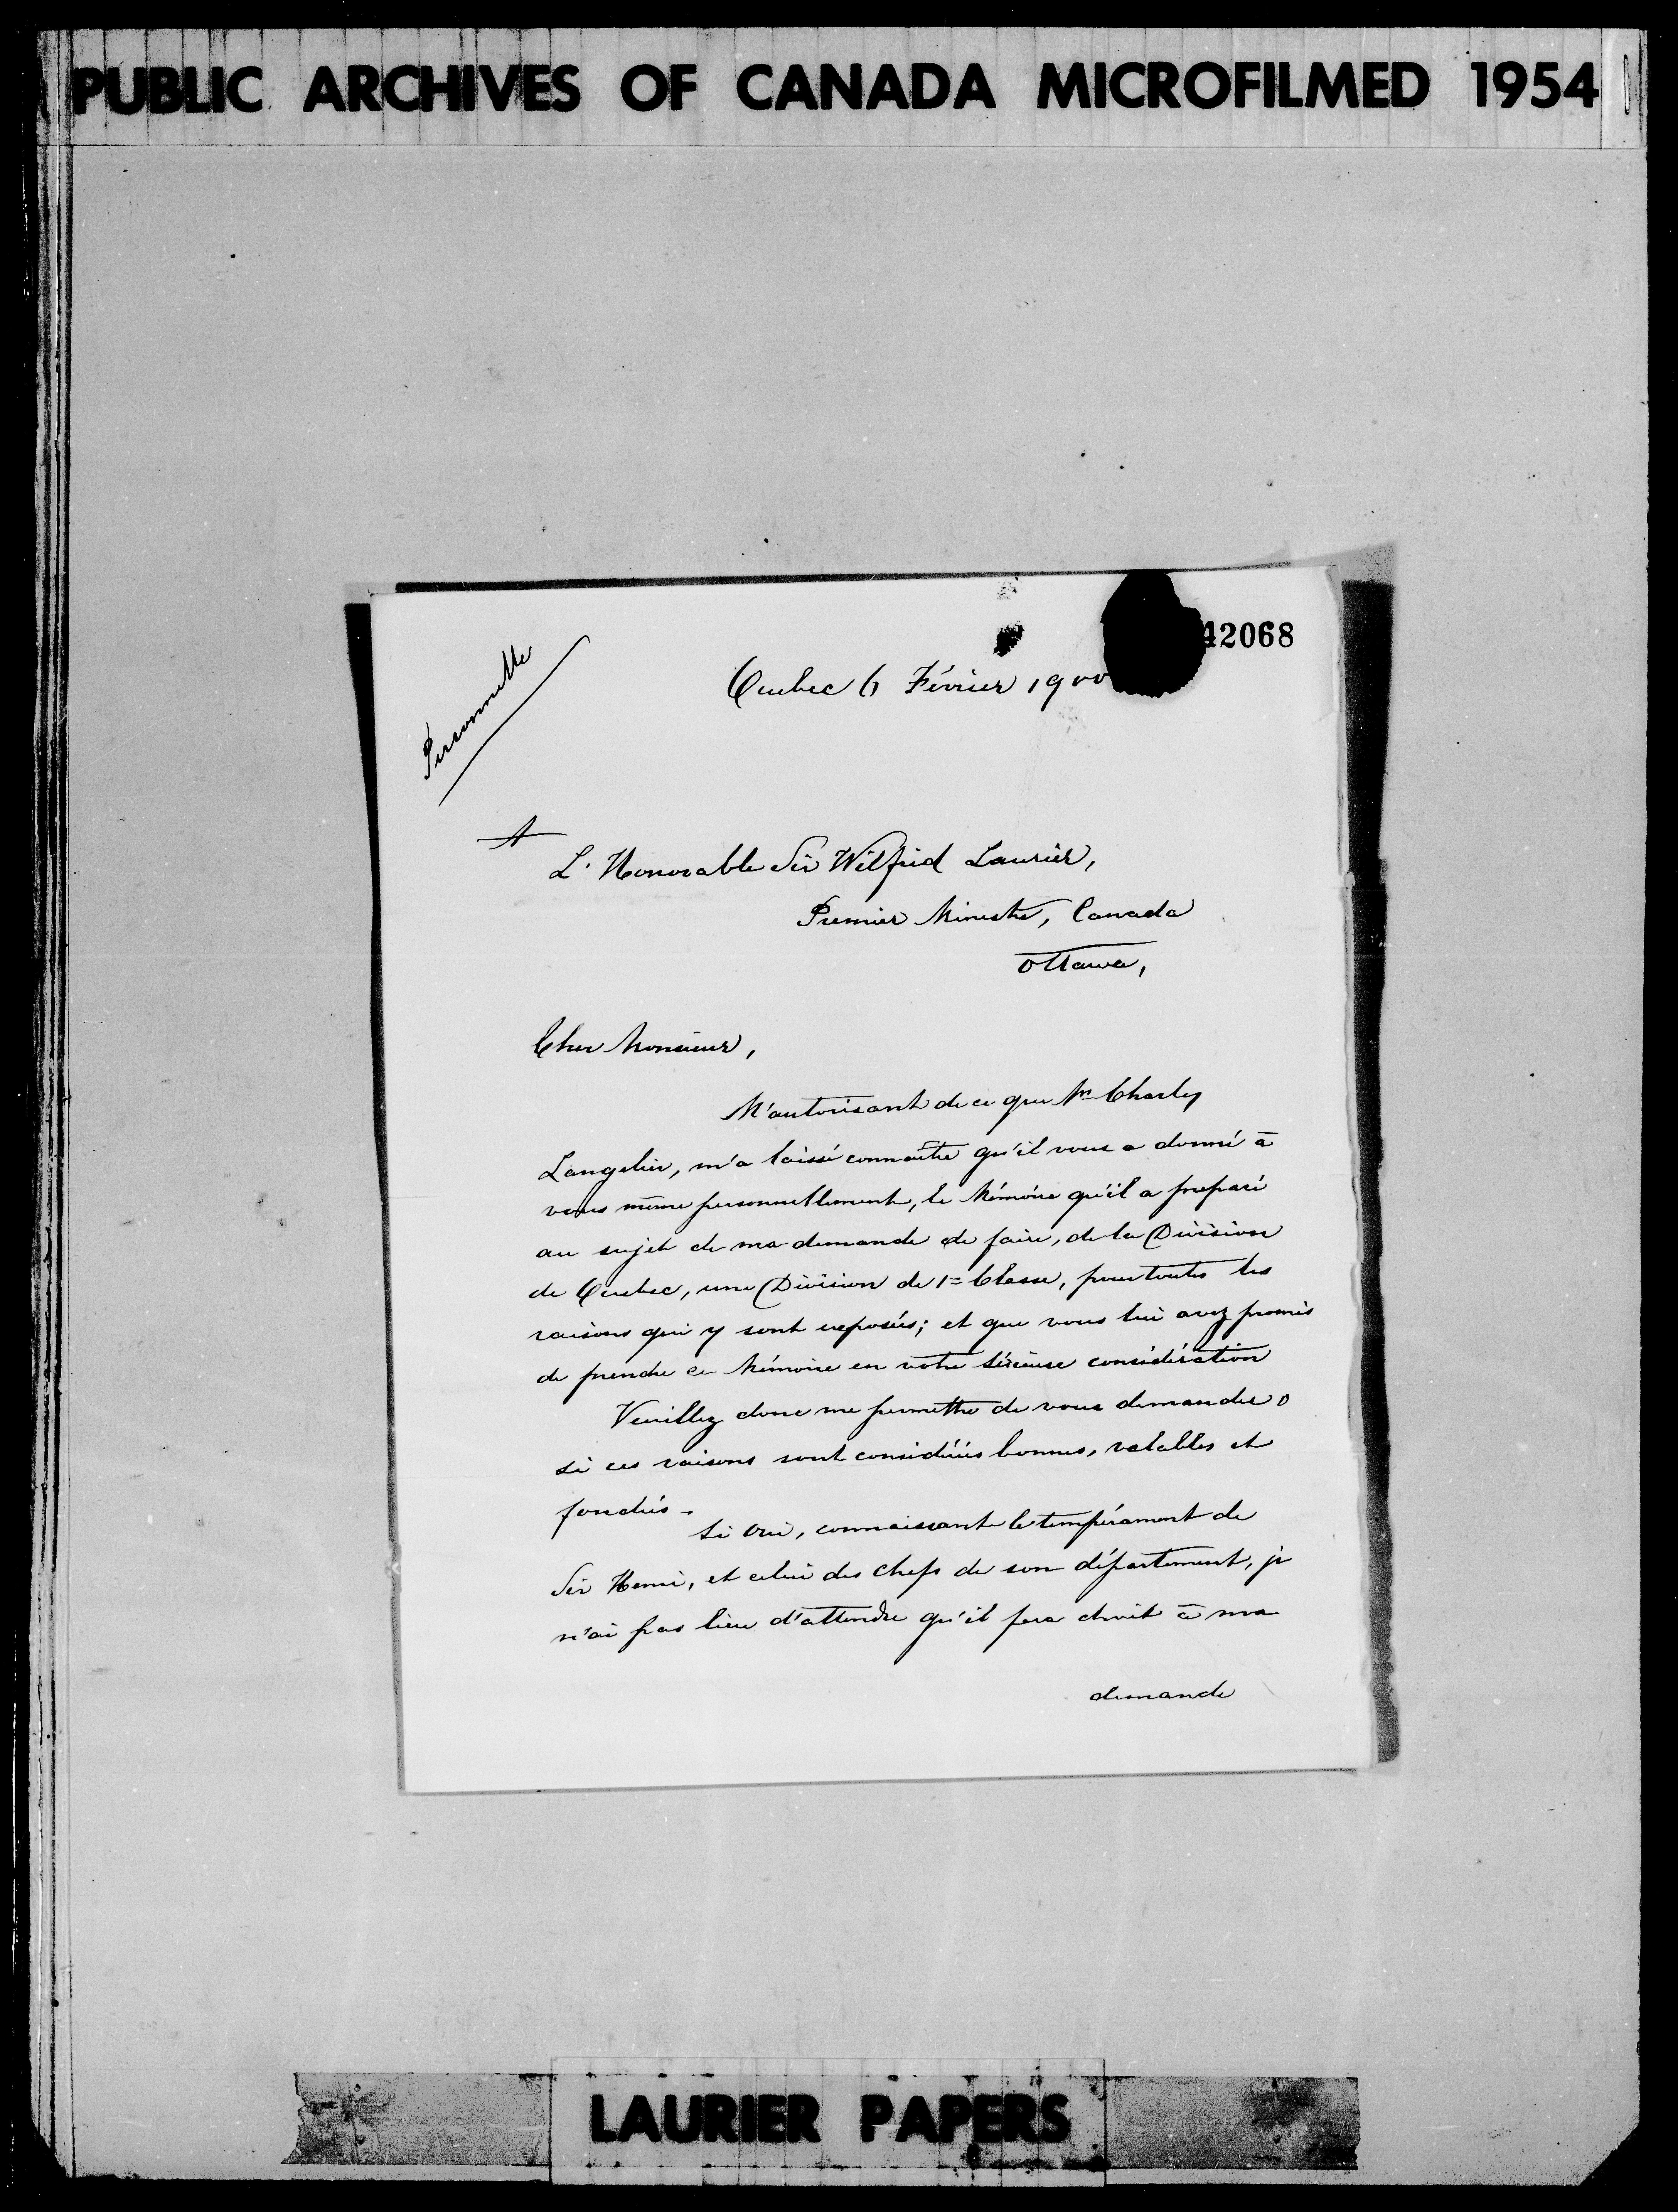 PUBLIC ARCHIVES OF CANADA MICROFILMED 1954
42068
Personnelle
Quebec 6 Février 1900
A
L'Honorable Sir Wilfrid Laurier,
Premier Ministre, Canada
Ottawa,
Cher Monsieur,
M'autorisant de ce que Mr Charles
Langelier, m'a laissé connaître qu'il vous a donné à
vous même personnellement, le Mémoire qu'il a preparé
au sujet de ma demande de faire, de la Division
de Quebec, une Division de 1= Classe, pour toutes les
raisons qui y sont exposées; et que vous lui avez promis
de prendre ce Mémoire en votre sérieuse considération
Veuillez donc me permettre de vous demander
si ces raisons sont considérées bonnes, valables et
fondées -
Si oui, connaissant le tempérament de
Sir Henri, et celui des chefs de son département, je
n'ai pas lieu d'attendre qu'il fera droit à ma
demande
LAURIER PAPERS